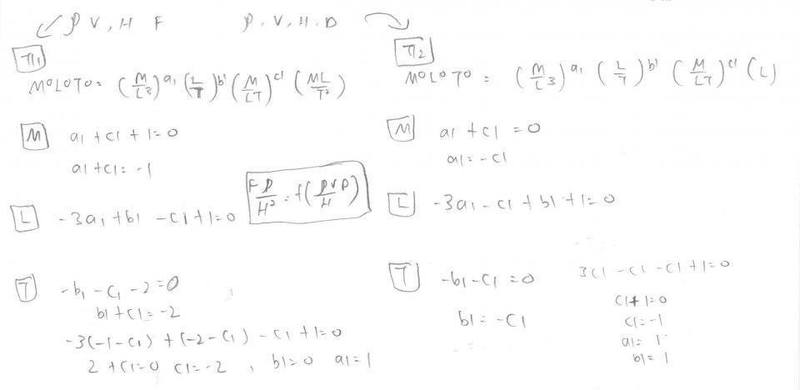 ρ V, H F
π1
M0L0T0 = (M/L3)^a1 (L/T)^b1 (M/LT)^c1 (ML/T2)
M
a1 + c1 + 1 = 0
a1 + c1 = -1
L
-3a1 + b1 - c1 + 1 = 0
T
-b1 - c1 - 2 = 0
b1 + c1 = -2
-3(-1 - c1) + (-2 - c1) - c1 + 1 = 0
2 + c1 = 0 c1 = -2, b1 = 0 a1 = 1
Fρ/H2 = f(ρVD/H)
ρ, V, H, D
π2
M0L0T0 = (M/L3)^a1 (L/T)^b1 (M/LT)^c1 (L)
M
a1 + c1 = 0
a1 = -c1
L
-3a1 - c1 + b1 + 1 = 0
T
-b1 - c1 = 0
b1 = -c1
3c1 - c1 - c1 + 1 = 0
c1 + 1 = 0
c1 = -1
a1 = 1
b1 = 1